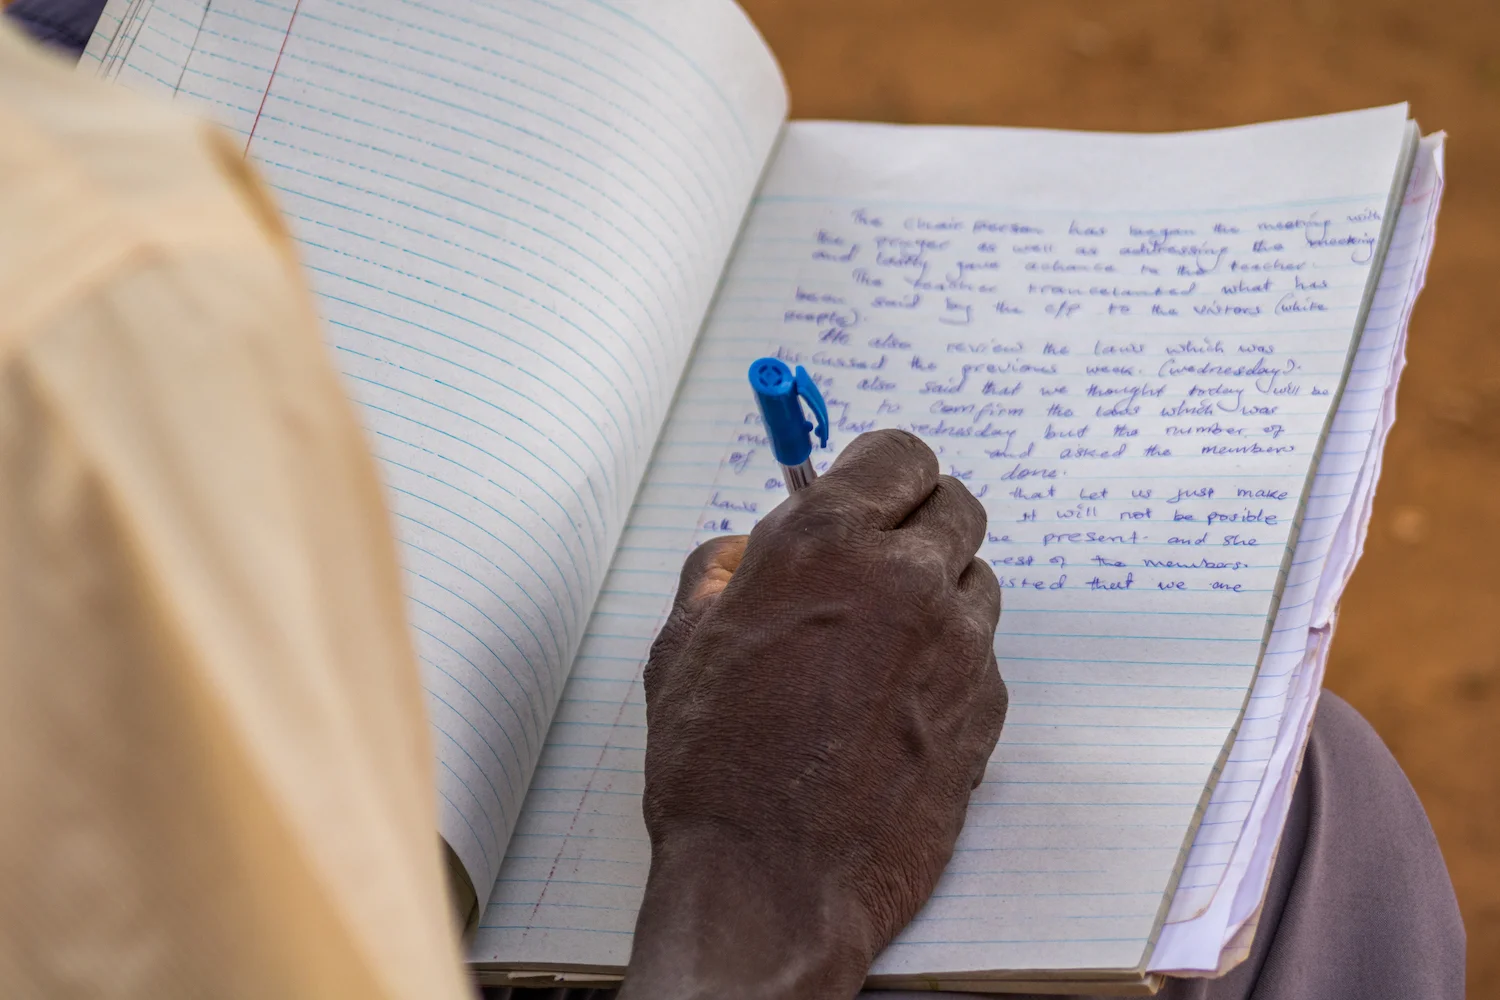 The chair person has began the meeting with
the prayer as well as addressing the meeting
and lastly gave achance to the teacher.
The teacher trancelanted what has
been said by the c/p to the visitors (white
people).
He also review the laws which was
discussed the previous week. (wednesday).
He also said that we thought today will be
day to comfirm the laws which was
last wednesday but the number of
and asked the members
of be done.
that Let us just make
Laws it will not be posible
all be present. and she
rest of the members.
that we are